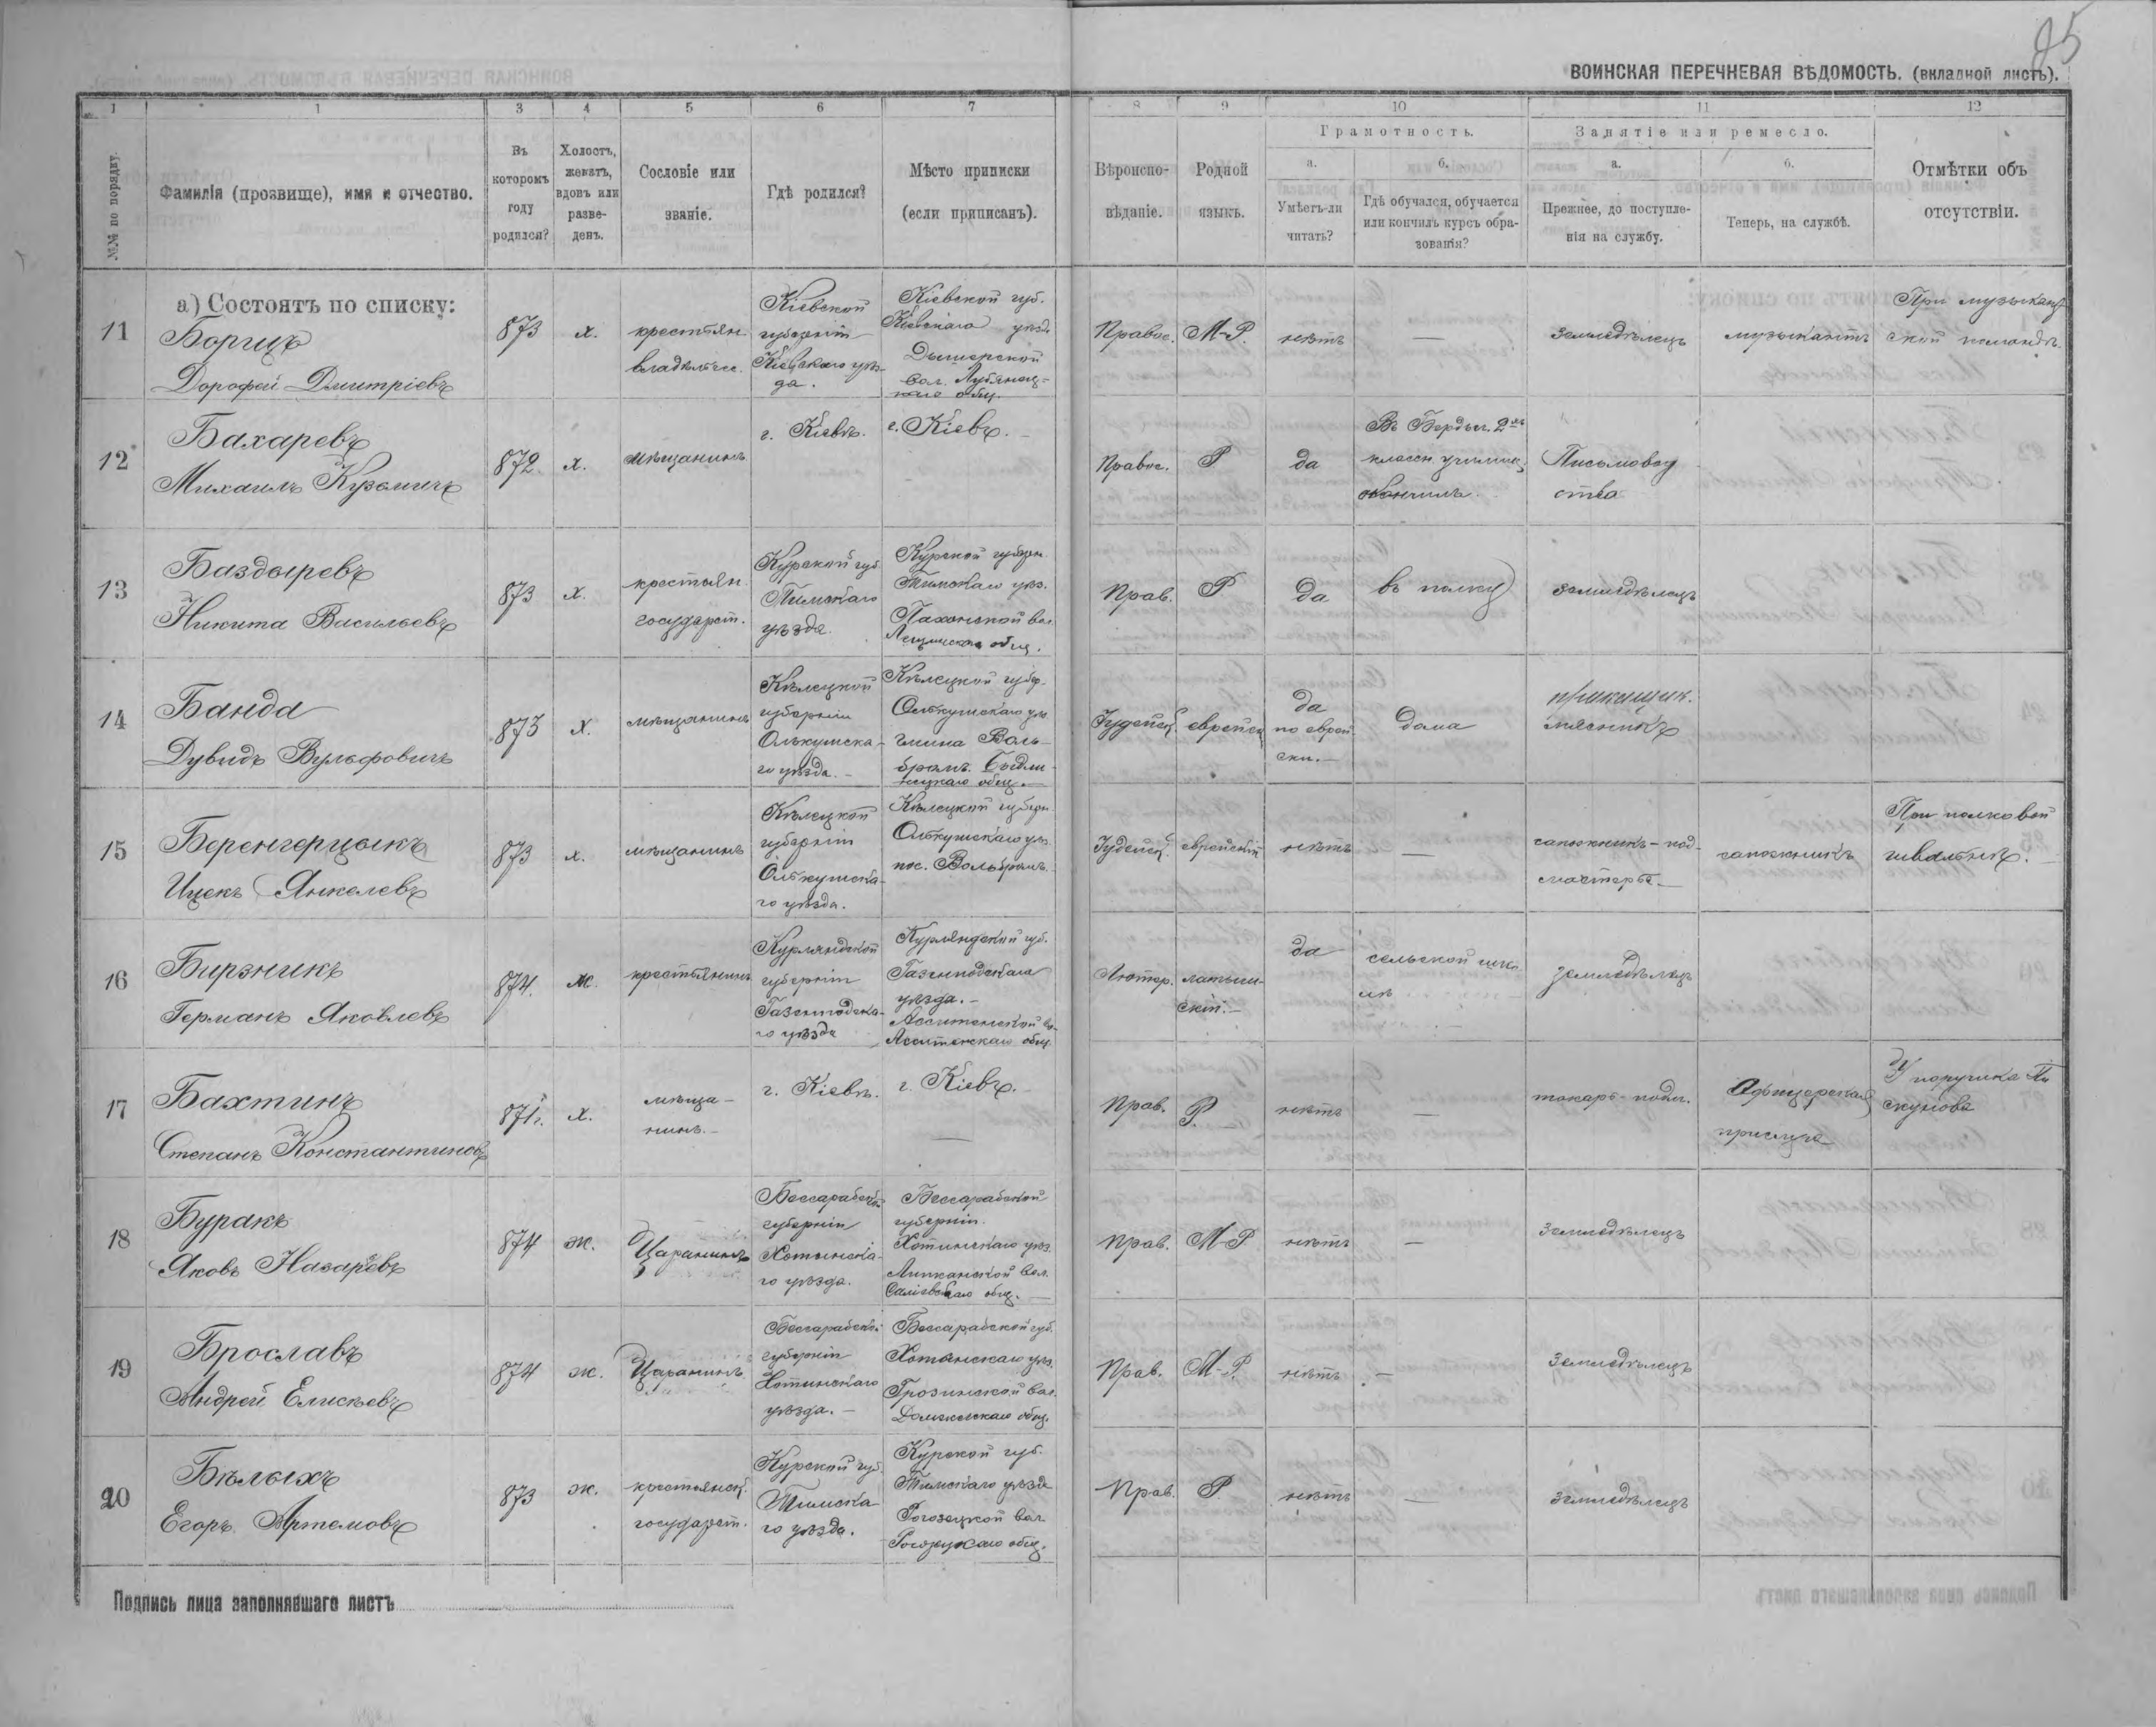 95
ВОИНСКАЯ ПЕРЕЧНЕВАЯ ВѢДОМОСТЬ. (вкладной листъ).
1 1 3 4 5 6 7 8 9 10 11 12
№№ по порядку.
Фамилія (прозвище), имя и отчество.
Въ которомъ году родился?
Холостъ, женатъ, вдовъ или разве-
денъ.
Сословіе или званіе.
Гдѣ родился?
Мѣсто приписки (если приписанъ).
Вѣроиспо-
вѣданіе.
Родной языкъ.
Грамотность.
а. Умѣетъ-ли читать?
б. Гдѣ обучался, обучается или кончилъ курсъ обра-
зованія?
Занятіе или ремесло.
а. Прежнее, до поступле-
нія на службу.
б. Теперь, на службѣ.
Отмѣтки объ отсутствіи.
а) Состоятъ по списку:
11
Борщъ
Дорофей Дмитріевъ
873
х.
крестьян.
владѣльчес.
Кіевской
губерніи
Кіевскаго уѣз-
да.
Кіевской губ.
Кіевскаго уѣзда
Дымерской
вол.
общ.
Правос.
М-Р.
нѣтъ
—
земледѣлецъ
музыкантъ
При музыкант
ской командѣ.
12
Бахаревъ
Михаилъ Кузьмичъ
872.
х.
мѣщанинъ
г. Кіевъ.
г. Кіевъ. –
Правос.
Р
да
Въ Бердич. 2хъ
классн. училищ
окончилъ.
Письмовод
ства
13
Баздыревъ
Никита Васильевъ
873
х.
крестьян.
государст.
Курской губ
Тимскаго
уѣзда.
Курской губерн.
Тимскаго уѣз.
вол
общ.
Прав.
Р
да
въ полку
земледѣлецъ
14
Банда
Дувидъ Вульфовичъ
873
х.
мѣщанинъ
Кѣлецкой
губерніи
Олькушска-
го уѣзда. –
Кѣлецкой губер.
Олькушскаго уѣз
гмина Воль-
бромъ.
общ. –
Іудейск
еврейск
да
по еврей
ски. –
дома
прикащик.
мясникъ
15
Беренгерцыкъ
Ицекъ Янкелевъ
873
х.
мѣщанинъ
Кѣлецкой
губерніи
Олькушска-
го уѣзда.
Кѣлецкой губерн
Олькушскаго уѣз.
пос. Вольбромъ.
Іудейск.
еврейскій
нѣтъ
—
сапожникъ – под-
мастерье –
сапожникъ
При полковой
швальнѣ.
16
Бирзникъ
Германъ Яковлевъ
874.
ж.
крестьянинъ
Курляндской
губерніи
Газенподска-
го уѣзда
Курляндской губ.
Газенподскаго
уѣзда. –
Асситенской во-
Асситенскаго общ
Лютер.
латыш-
скій. –
да
сельской шко
лѣ
земледѣлецъ
17
Бахтинъ
Степанъ Константиновъ
871г.
х.
мѣща –
нинъ. –
г. Кіевъ.
г. Кіевъ. –
—
Прав.
Р. –
нѣтъ
—
токарь – подм.
Офицерская
прислуга
У поручика Пи
скунова
18
Буракъ
Яковъ Назаревъ
874
ж.
Царанинъ
Бессарабской
губерніи
Хотинска-
го уѣзда.
Бессарабской
губерніи.
Хотинскаго уѣз.
Липканской вол.
общ. –
Прав.
М-Р
нѣтъ
—
земледѣлецъ
19
Брославъ
Андрей Елисѣевъ
874
ж.
Царанинъ
Бессарабской
губерніи
Хотинскаго
уѣзда. –
Бессарабской губ.
Хотинскаго уѣз.
Грозинской вол.
общ.
Прав.
М-Р.
нѣтъ
—
земледѣлецъ
20
Бѣлыхъ
Егоръ Артемовъ
873
ж.
крестьянск.
государст.
Курской губ
Тимска
го уѣзда.
Курской губ.
Тимскаго уѣзда
Рогозецкой вол
Рогозецкаго общ.
Прав.
Р.
нѣтъ
—
земледѣлецъ
Подпись лица заполнявшаго листъ